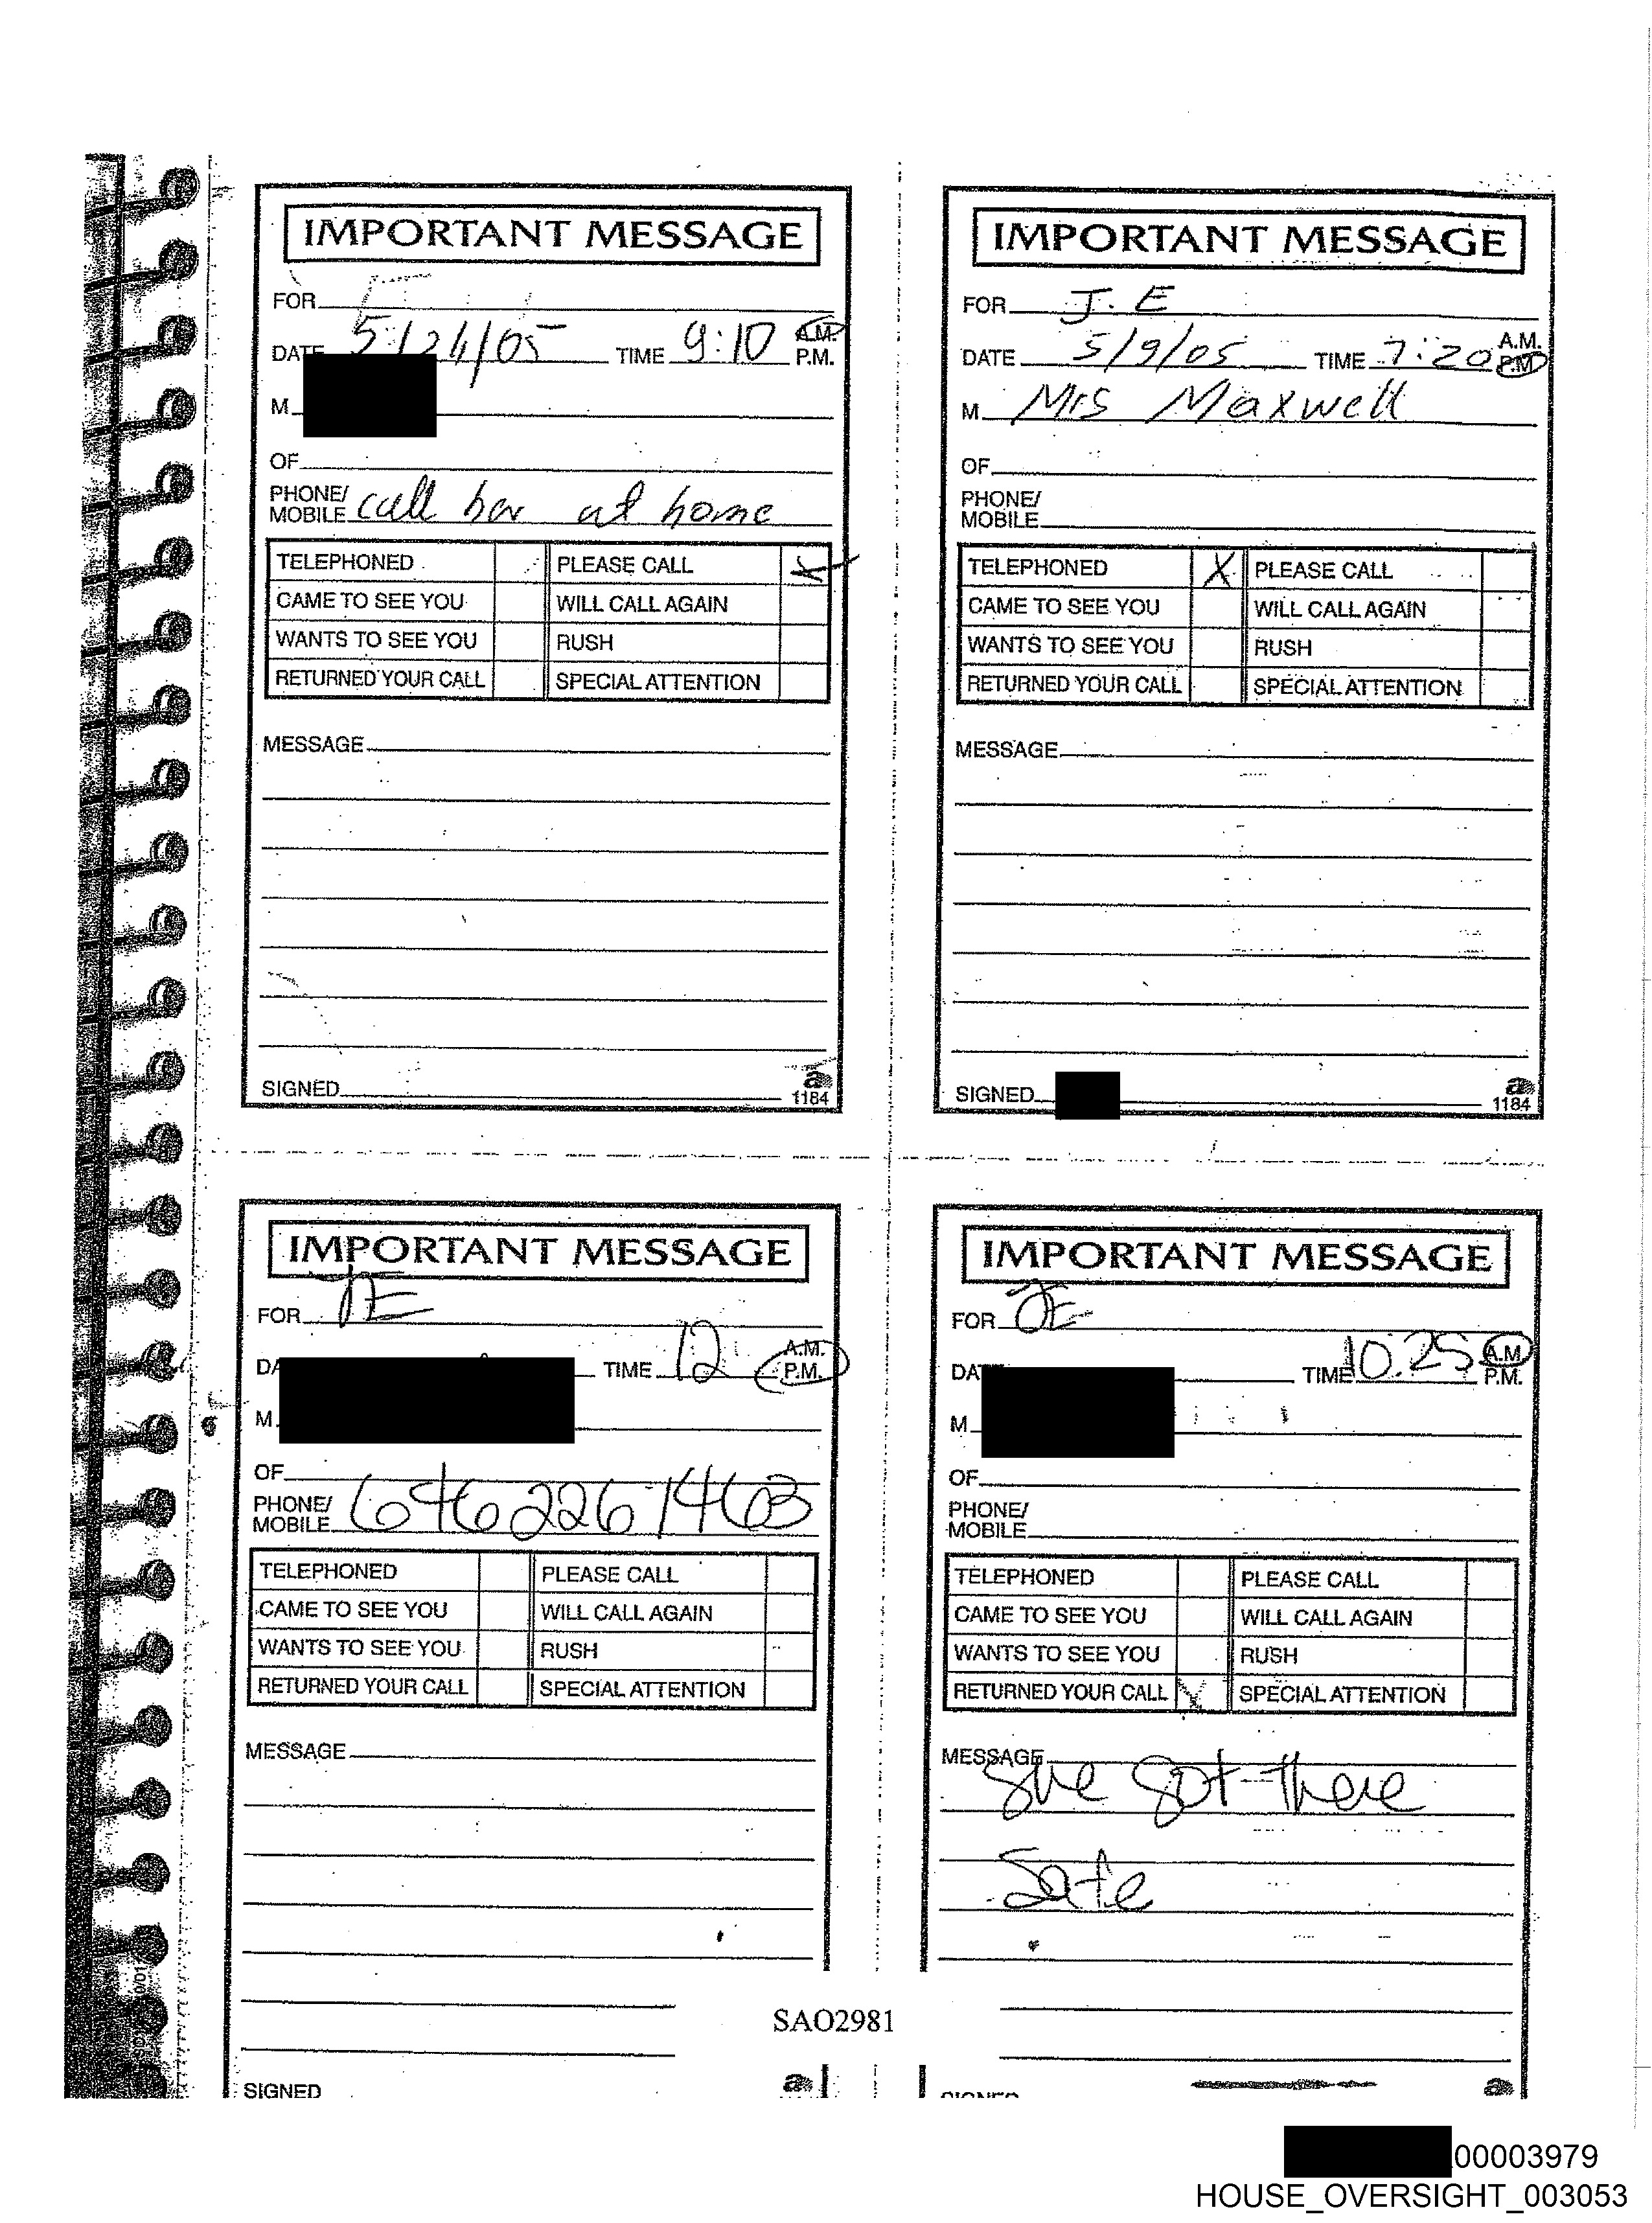 IMPORTANT MESSAGE
FOR
DATE 5/24/05 TIME 9:10 A.M. P.M.
M
OF
PHONE/ MOBILE call her at home
TELEPHONED PLEASE CALL X
CAME TO SEE YOU WILL CALL AGAIN
WANTS TO SEE YOU RUSH
RETURNED YOUR CALL SPECIAL ATTENTION
MESSAGE
SIGNED
a
1184
IMPORTANT MESSAGE
FOR J. E
DATE 5/9/05 TIME 7:20 A.M. P.M.
M Mrs Maxwell
OF
PHONE/ MOBILE
TELEPHONED X PLEASE CALL
CAME TO SEE YOU WILL CALL AGAIN
WANTS TO SEE YOU RUSH
RETURNED YOUR CALL SPECIAL ATTENTION
MESSAGE
SIGNED
a
1184
IMPORTANT MESSAGE
FOR JE
DA TIME 12 A.M. P.M.
M
OF
PHONE/ MOBILE 646 226 1463
TELEPHONED PLEASE CALL
CAME TO SEE YOU WILL CALL AGAIN
WANTS TO SEE YOU RUSH
RETURNED YOUR CALL SPECIAL ATTENTION
MESSAGE
SIGNED
a
IMPORTANT MESSAGE
FOR JE
DAT TIME 10:25 A.M. P.M.
M
OF
PHONE/ MOBILE
TELEPHONED PLEASE CALL
CAME TO SEE YOU WILL CALL AGAIN
WANTS TO SEE YOU RUSH
RETURNED YOUR CALL X SPECIAL ATTENTION
MESSAGE
She got there
Safe
SIGNED
a
SAO2981
00003979
HOUSE_OVERSIGHT_003053